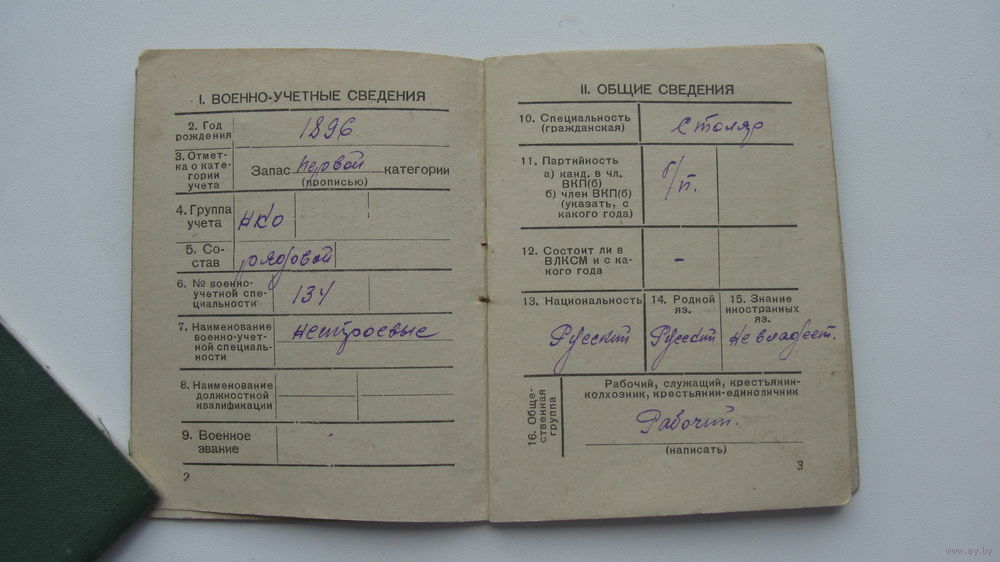 I. ВОЕННО-УЧЕТНЫЕ СВЕДЕНИЯ
2. Год
рождения
1896
3. Отмет-
ка о кате-
гории
учета
Запас первой категории
(прописью)
4. Группа
учета
НКО
5. Со-
став
рядовой
6. № военно-
учетной спе-
циальности
134
7. Наименование
военно-учет-
ной специаль-
ности
нестроевые
8. Наименование
должностной
квалификации
9. Военное
звание
2
II. ОБЩИЕ СВЕДЕНИЯ
10. Специальность
(гражданская)
Столяр
11. Партийность
а) канд. в чл.
ВКП(б)
б) член ВКП(б)
(указать, с
какого года)
б/п.
12. Состоит ли в
ВЛКСМ и с ка-
кого года
-
13. Национальность
Русский
14. Родной
яз.
Русский
15. Знание
иностранных
яз.
не владеет.
16. Обще-
ственная
группа
Рабочий, служащий, крестьянин-
колхозник, крестьянин-единоличник
Рабочий.
(написать)
3
www.ay.by